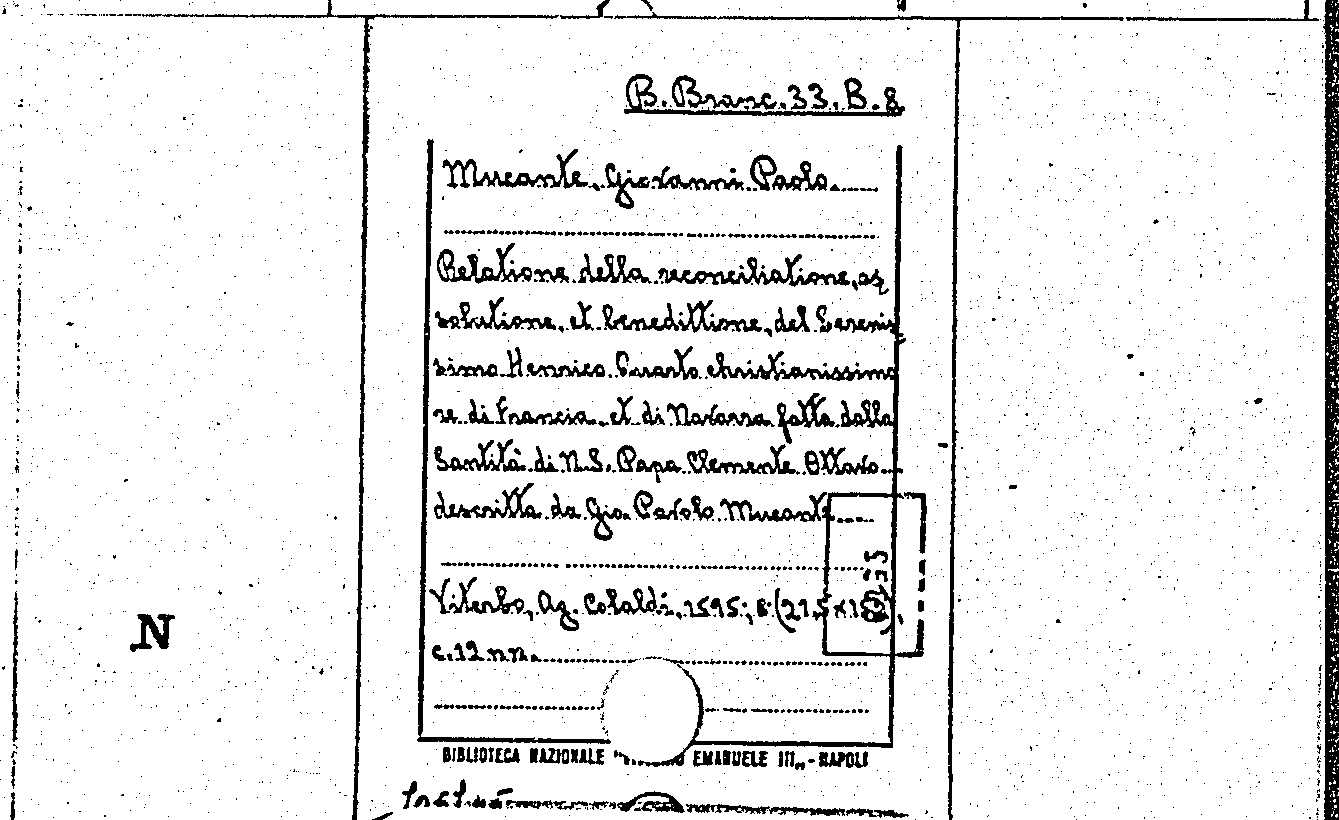 B. Branc. 33. B. 8
Mucante, Giovanni Paolo.
Relatione della reconciliatione, as
solutione, et benedittione, del Serenis
simo Henrico Quarto christianissimo
re di Francia, et di Navarra fatta dalla
Santità di N.S. Papa Clemente Ottavo
descritta da Gio. Pavolo Mucante
Viterbo, Ag. Colaldi, 1595; 8° (21,5 x 15),
c. 12 nn.
N
BIBLIOTECA NAZIONALE EMANUELE III„ - NAPOLI